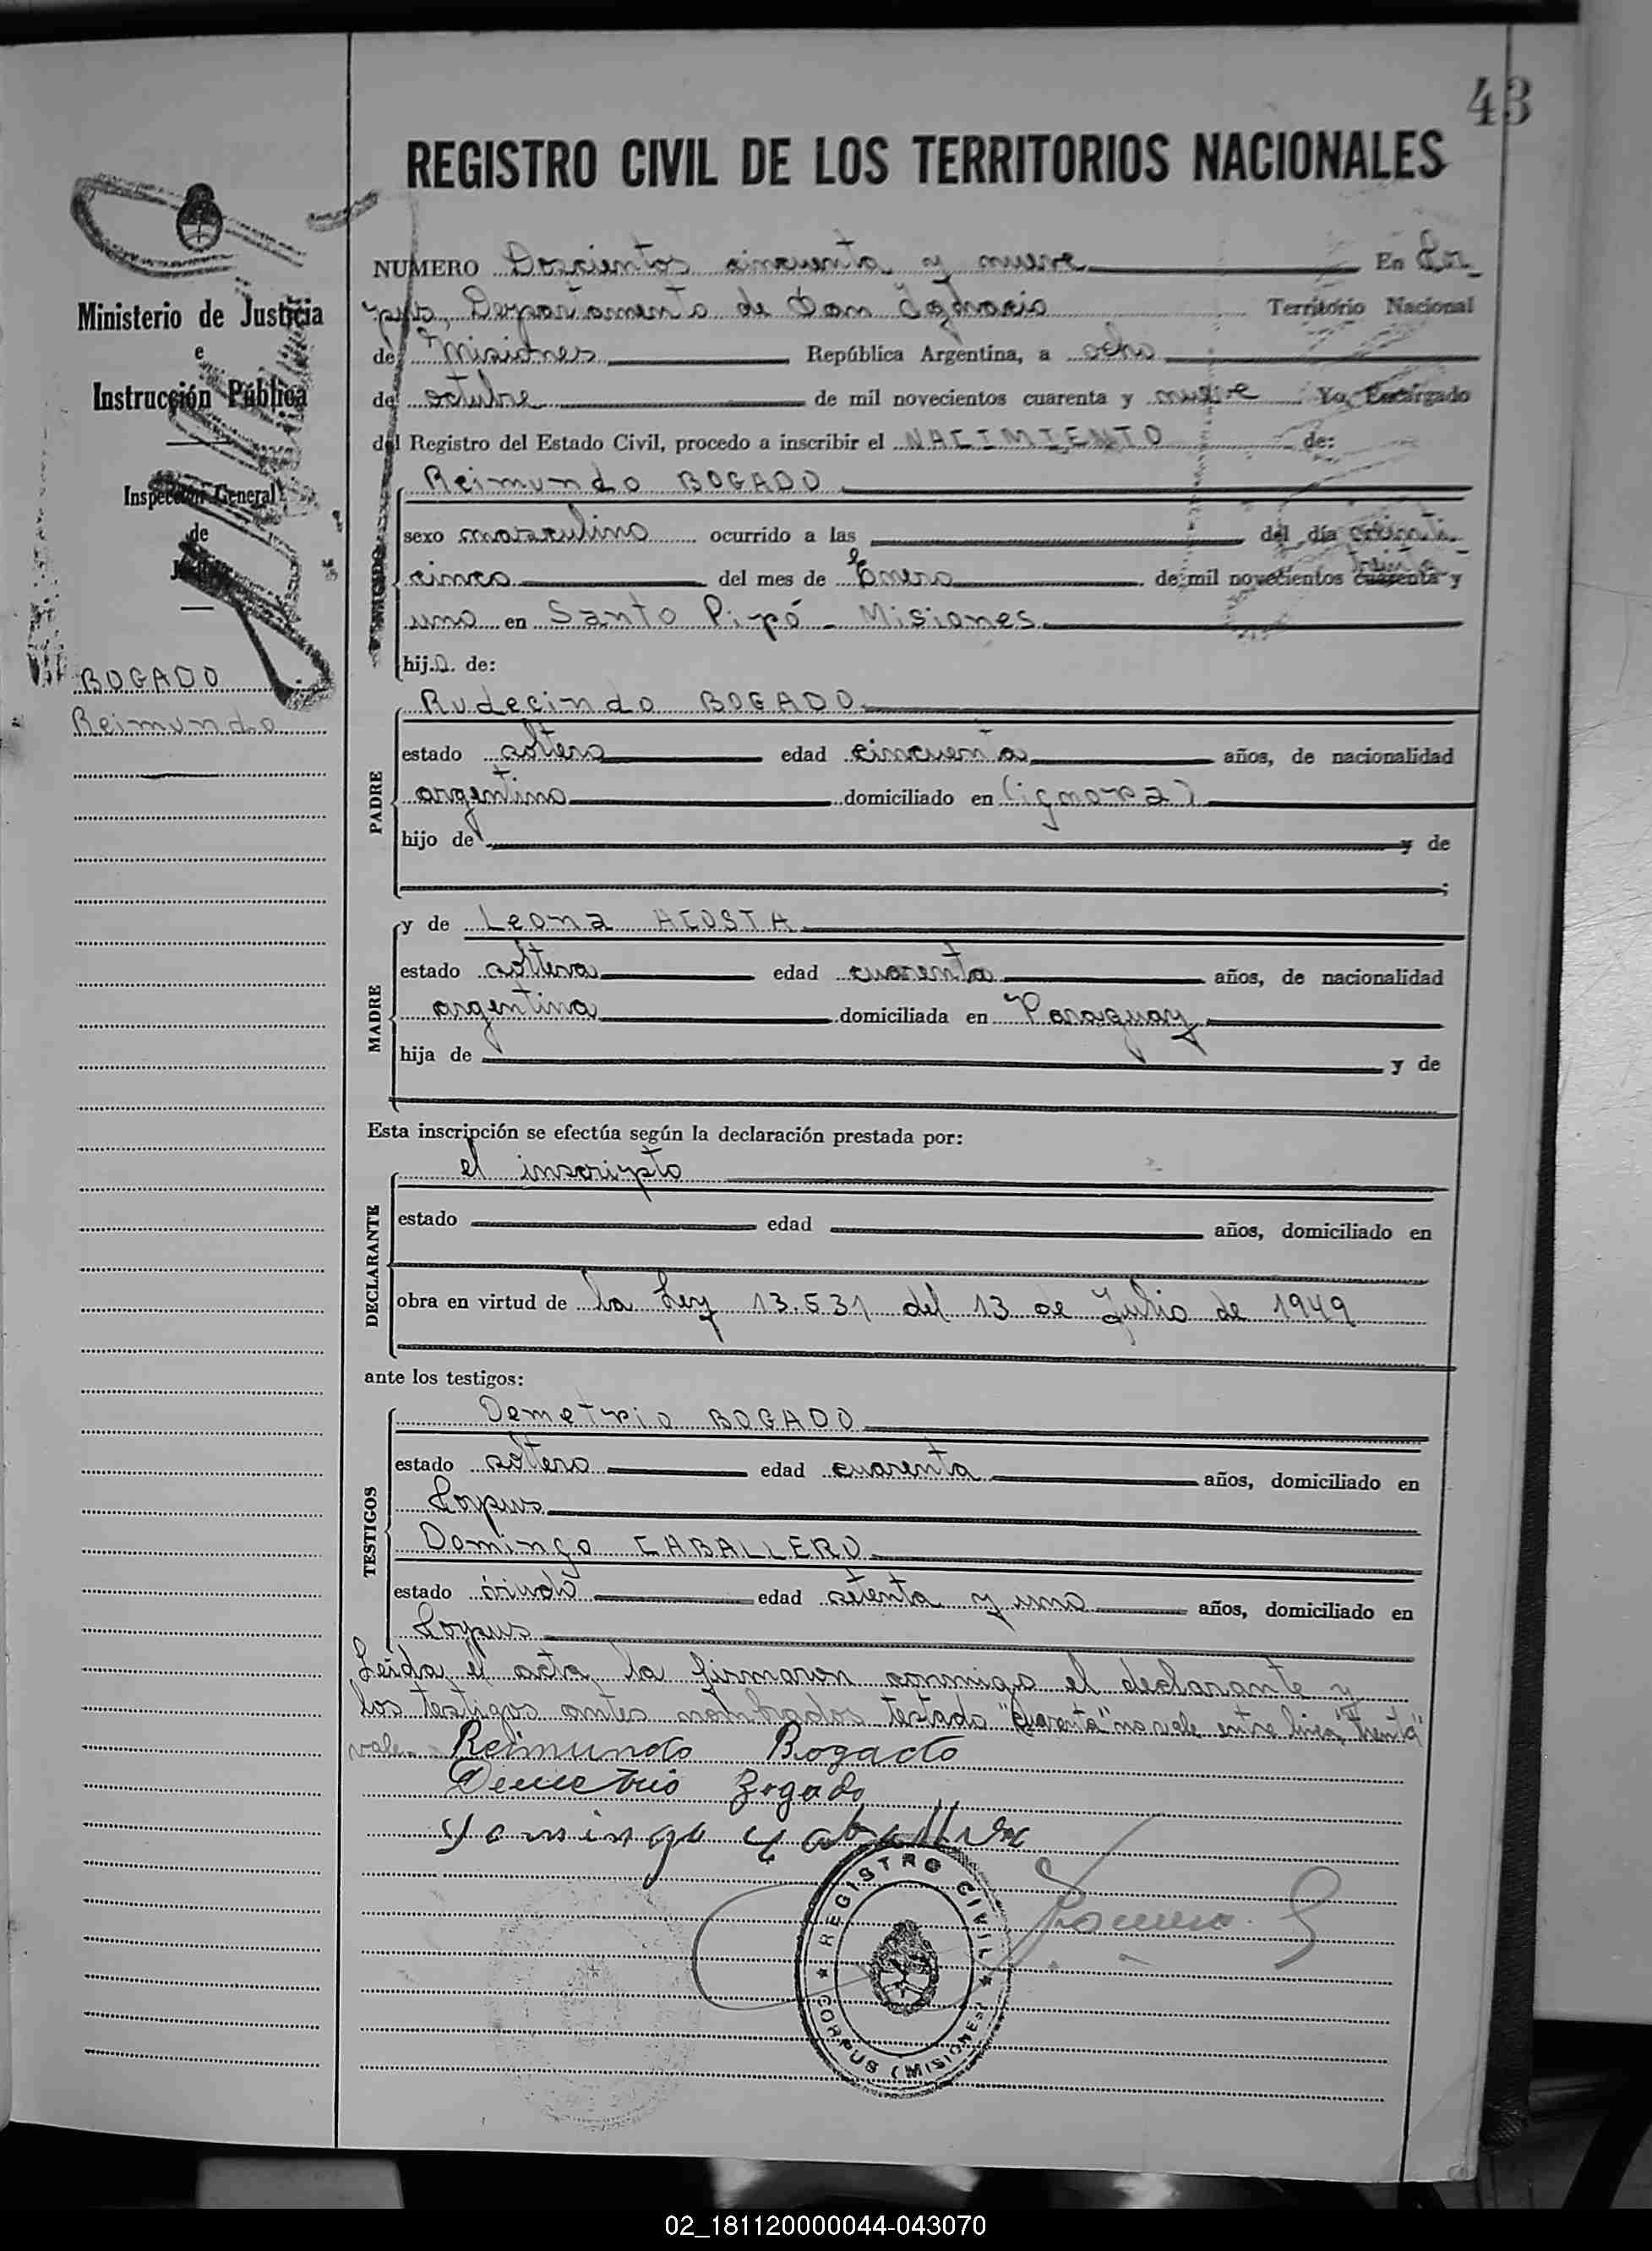 43
REGISTRO CIVIL DE LOS TERRITORIOS NACIONALES
Ministerio de Justicia
e
Instrucción Pública
Inspección General
de
BOGADO
Reimundo
NUMERO Doscientos cincuenta y nueve En Cor
pus, Departamento de San Ignacio Territorio Nacional
de Misiones República Argentina, a ocho
de octubre de mil novecientos cuarenta y nueve Yo, Encargado
del Registro del Estado Civil, procedo a inscribir el NACIMIENTO de:
Reimundo BOGADO
sexo masculino ocurrido a las del día veinti-
cinco del mes de Enero de mil novecientos cuarenta treinta y
uno en Santo Pipó - Misiones
hijo de:
PADRE
Rudecindo BOGADO
estado soltero edad cincuenta años, de nacionalidad
argentino domiciliado en (ignora)
hijo de y de
;
MADRE
y de Leona ACOSTA
estado soltera edad cuarenta años, de nacionalidad
argentina domiciliada en Paraguay
hija de y de
Esta inscripción se efectúa según la declaración prestada por:
DECLARANTE
el inscripto
estado edad años, domiciliado en
obra en virtud de la Ley 13.531 del 13 de Julio de 1949
ante los testigos:
TESTIGOS
Demetrio BOGADO
estado soltero edad cuarenta años, domiciliado en
Corpus
Domingo CABALLERO
estado viudo edad setenta y uno años, domiciliado en
Corpus
Leída el acta la firmaron conmigo el declarante y
los testigos antes nombrados testado "cuarenta" no vale entre linea "treinta"
vale.
Reimundo Bogado
Demetrio Bogado
REGISTRO CIVIL
CORPUS (MISIONES)
02_181120000044-043070